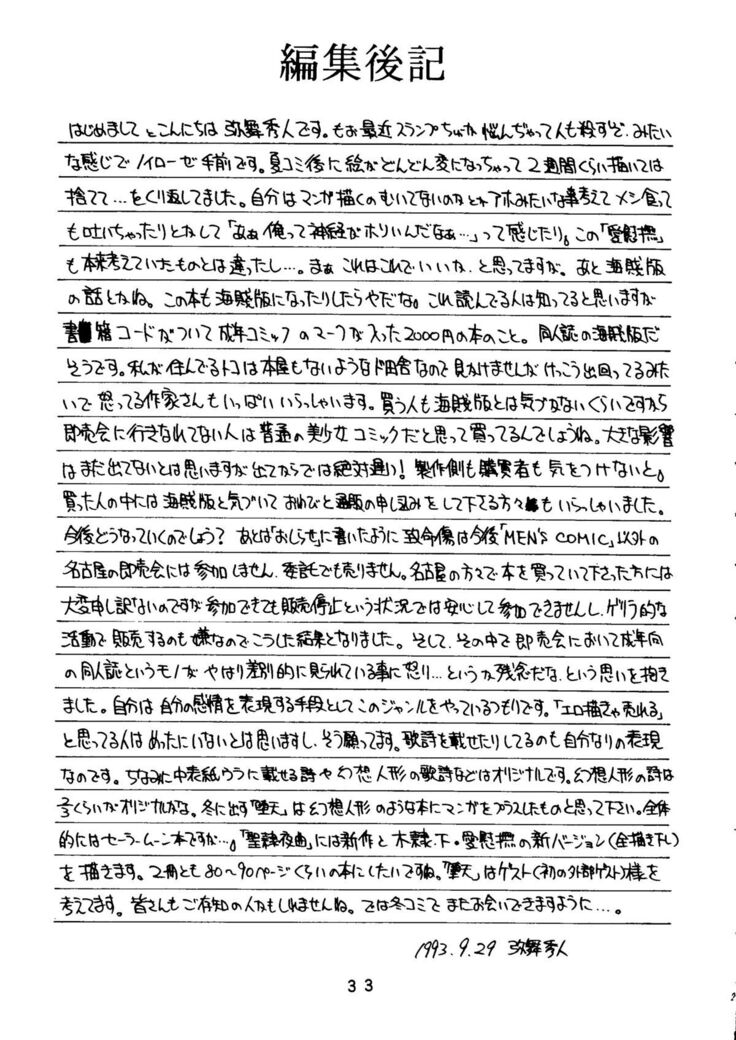 編集後記
はじめまして とこんにちは 弥舞秀人です。もお最近スランプちゅーか 悩んぢゃって人も殺すぞ、みたい
な感じでノイローゼ手前です。夏コミ後に絵がどんどん変になっちゃって2週間くらい描いては
捨てて…をくり返してました。自分はマンガ描くのむいてないのかとかアホみたいな事考えてメシ食って
も吐いちゃったりとかして「あぁ俺って神経がホソいんだなぁ…」って感じたり。この「愛慰撫」
も本来考えていたものとは違ったし…。まぁこれはこれでいいか、と思ってますが。あと海賊版
の話とかね。この本も海賊版になったりしたらやだな。これ読んでる人は知ってると思いますが
書籍コードがついて成年コミックのマークが入った2000円の本のこと。同人誌の海賊版だ
そうです。私が住んでるトコは本屋もないようなド田舎なので見かけませんがけっこう出回ってるみた
いで怒ってる作家さんもいっぱいいらっしゃいます。買う人も海賊版とは気づかないくらいですから
即売会に行きなれてない人は普通の美少女コミックだと思って買ってるんでしょうね。大きな影響
はまだ出てないとは思いますが出てからでは絶対遅い！製作側も購買者も気をつけないと。
買った人の中には海賊版と気づいておわびと通販の申し込みをして下さる方々もいらっしゃいました。
今後どうなっていくのでしょう？あとは「おしらせ」に書いたように致命傷は今後「MEN'S COMIC」以外の
名古屋の即売会には参加しません、委託でも売りません。名古屋の方々で本を買っていて下さった方には
大変申し訳ないのですが参加できても販売停止という状況では安心して参加できませんし、ゲリラ的な
活動で販売するのも嫌なのでこうした結果となりました。そして、その中で即売会において成年向
の同人誌というモノがやはり差別的に見られている事に怒り…というか残念だな、という思いを抱き
ました。自分は自分の感情を表現する手段としてこのジャンルをやっているつもりです。「エロ描きゃ売れる」
と思ってる人はめったにいないとは思いますし、そう願ってます。歌詩を載せたりしてるのも自分なりの表現
なのです。ちなみに中表紙ウラに載せる詩や幻想人形の歌詩などはオリジナルです。幻想人形の詩は
2/3くらいがオリジナルかな。冬に出す「堕天」は幻想人形のような本にマンガをプラスしたものと思って下さい。全体
的にはセーラームーン本ですが…。「聖隷夜曲」には新作と木隷下・愛慰撫の新バージョン（全描き下し）
を描きます。2冊とも80〜90ページくらいの本にしたいですね。「堕天」はゲスト（初の外部ゲスト）様を
考えてます。皆さんもご存知の人かもしれませんね。では冬コミでまたお会いできますように…。
1993.9.29 弥舞秀人
33